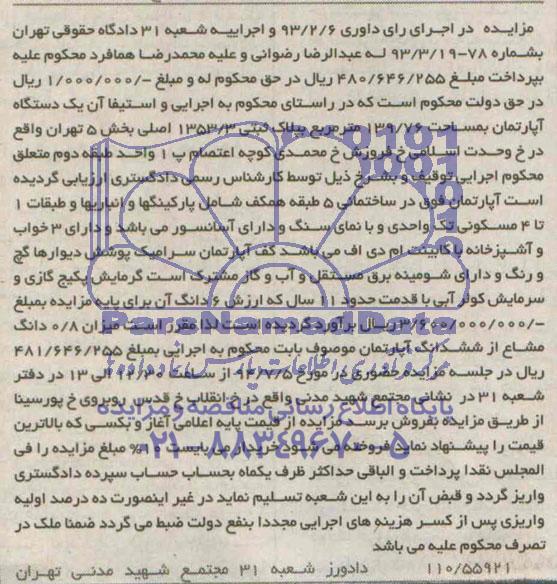 مزایده در اجرای رای داوری ۹۳/۲/۶ و اجراییه شعبه ۳۱ دادگاه حقوقی تهران
بشماره ۷۸-۹۳/۳/۱۹ له عبدالرضا رضوانی و علیه محمدرضا همافرد محکوم علیه
بپرداخت مبلغ ۴۸۰/۶۴۶/۲۵۵ ریال در حق محکوم له و مبلغ -/۱/۰۰۰/۰۰۰ ریال
در حق دولت محکوم است که در راستای محکوم به اجرایی و استیفا آن یک دستگاه
آپارتمان بمساحت ۱۳۹/۷۶ مترمربع پلاک ثبتی ۱۳۵۳/۳ اصلی بخش ۵ تهران واقع
در خ وحدت اسلامی خ فروزش خ محمدی کوچه اعتصام پ ۱ واحد طبقه دوم متعلق
محکوم اجرایی توقیف و بشرح ذیل توسط کارشناس رسمی دادگستری ارزیابی گردیده
است آپارتمان فوق در ساختمانی ۵ طبقه همکف شامل پارکینگها و انباریها و طبقات ۱
تا ۴ مسکونی تک واحدی و با نمای سنگ و دارای آسانسور می باشد و دارای ۳ خواب
و آشپزخانه با کابینت ام دی اف می باشد کف آپارتمان سرامیک پوشش دیوارها گچ
و رنگ و دارای شومینه برق مستقل و آب و گاز مشترک است گرمایش پکیج گازی و
سرمایش کولر آبی با قدمت حدود ۱۱ سال که ارزش ۶ دانگ آن برای پایه مزایده بمبلغ
-/۳/۶۰۰/۰۰۰/۰۰۰ ریال برآورد گردیده است لذا مقرر است میزان ۰/۸ دانگ
مشاع از ششدانگ آپارتمان موصوف بابت محکوم به اجرایی بمبلغ ۴۸۱/۶۴۶/۲۵۵
ریال در جلسه مزایده حضوری در مورخ ۹۳/۷/۵ از ساعت ۱۲/۳۰ الی ۱۳ در دفتر
شعبه ۳۱ در نشانی مجتمع شهید مدنی واقع در خ انقلاب خ قدس روبروی خ پورسینا
از طریق مزایده بفروش برسد مزایده از قیمت پایه اعلامی آغاز و بکسی که بالاترین
قیمت را پیشنهاد نماید فروخته می شود خریدار می بایست ۱۰% مبلغ مزایده را فی
المجلس نقدا پرداخت و الباقی حداکثر ظرف یکماه بحساب حساب سپرده دادگستری
واریز گردد و قبض آن را به این شعبه تسلیم نماید در غیر اینصورت ده درصد اولیه
واریزی پس از کسر هزینه های اجرایی مجددا بنفع دولت ضبط می گردد ضمنا ملک در
تصرف محکوم علیه می باشد
۱۱۰/۵۵۹۲۱ دادورز شعبه ۳۱ مجتمع شهید مدنی تهران
ParsNamadData
پایگاه اطلاع رسانی مناقصه و مزایده
۰۲۱-۸۸۳۴۹۶۷۰-۵